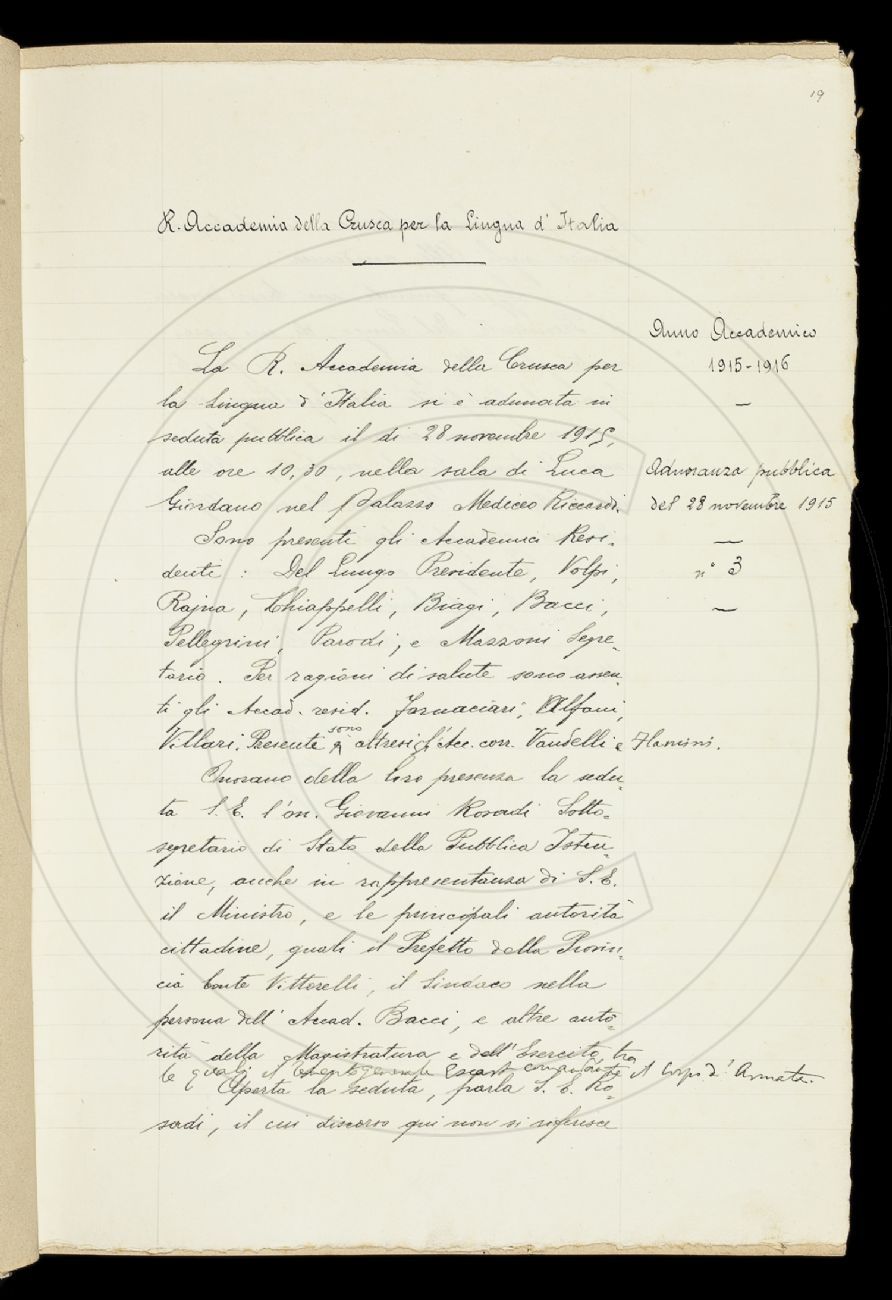 19
R. Accademia della Crusca per la Lingua d' Italia
Anno Accademico
1915-1916
Adunanza pubblica
del 28 novembre 1915
n° 3
La R. Accademia della Crusca per
la Lingua d' Italia si è adunata in
seduta pubblica il dì 28 novembre 1915,
alle ore 10,30, nella sala di Luca
Giordano nel Palazzo Mediceo Riccardi.
Sono presenti gli Accademici Resi-
denti: Del Lungo Presidente, Volpi,
Rajna, Chiappelli, Biagi, Bacci,
Pellegrini, Parodi, e Mazzoni Segre-
tario. Per ragioni di salute sono assen-
ti gli Accad. resid. Fornaciari, Alfani,
Villari. Presente sono altresì gl' Acc. corr. Vandelli e Flamini.
Onorano della loro presenza la sedu-
ta S. E. l'on. Giovanni Rosadi Sotto-
segretario di Stato della Pubblica Istru-
zione, anche in rappresentanza di S. E.
il Ministro, e le principali autorità
cittadine, quali il Prefetto della Provin-
cia Conte Vittorelli, il Sindaco nella
persona dell' Accad. Bacci, e altre auto-
rità della Magistratura e dell' Esercito, tra
le quali il generale comandante il Corpo d' Armata.
Aperta la seduta, parla S. E. Ro-
sadi, il cui discorso qui non si riferisce